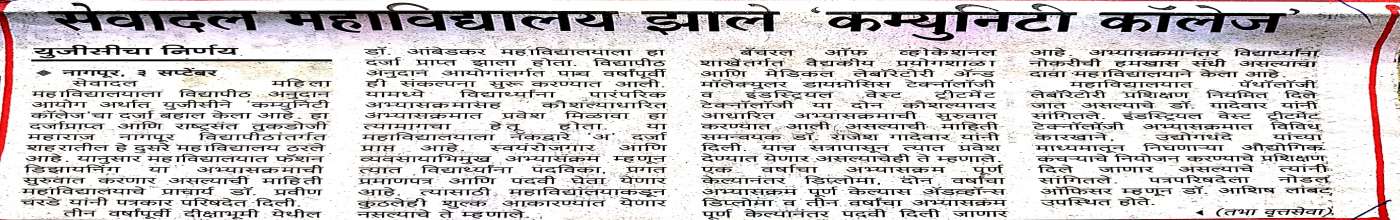 सेवादल महाविद्यालय झाले 'कम्युनिटी कॉलेज'
युजीसीचा निर्णय
◆ नागपूर, ३ सप्टेंबर
सेवादल महिला
महाविद्यालयाला विद्यापीठ अनुदान
आयोग अर्थात युजीसीने 'कम्युनिटी
कॉलेज'चा दर्जा बहाल केला आहे. हा
दर्जाप्राप्त आणि राष्ट्रसंत तुकडोजी
महाराज नागपूर विद्यापीठांतर्गत
शहरातील हे दुसरे महाविद्यालय ठरले
आहे. यानुसार महाविद्यालयात फॅशन
डिझायनिंग या अभ्यासक्रमाची
सुरुवात करणार असल्याची माहिती
महाविद्यालयाचे प्राचार्य डॉ. प्रवीण
चरडे यांनी पत्रकार परिषदेत दिली.
तीन वर्षांपूर्वी दीक्षाभूमी येथील
डॉ. आंबेडकर महाविद्यालयाला हा
दर्जा प्राप्त झाला होता. विद्यापीठ
अनुदान आयोगांतर्गत पाच वर्षांपूर्वी
ही संकल्पना सुरू करण्यात आली.
यामध्ये विद्यार्थ्यांना पारंपारिक
अभ्यासक्रमासह कौशल्याधारित
अभ्यासक्रमात प्रवेश मिळावा हा
त्यामागचा हेतू होता. या
महाविद्यालयाला नॅकद्वारे 'अ' दर्जा
प्राप्त आहे. स्वयंरोजगार आणि
व्यवसायाभिमुख अभ्यासक्रम म्हणून
त्यात विद्यार्थ्यांना पदविका, प्रगत
प्रमाणपत्र आणि पदवी घेता येणार
आहे. त्यासाठी महाविद्यालयाकडून
कुठलेही शुल्क आकारण्यात येणार
नसल्याचे ते म्हणाले.
बॅचरल ऑफ व्होकेशनल
शाखेंतर्गत वैद्यकीय प्रयोगशाळा
आणि मेडिकल लेबॉरेटोरी अ‍ॅन्ड
मॉलेक्युलर डायग्नोसिस टेक्नॉलॉजी
व इंडस्ट्रियल वेस्ट ट्रीटमेंट
टेक्नॉलॉजी या दोन कौशल्यावर
आधारित अभ्यासक्रमाची सुरुवात
करण्यात आली असल्याची माहिती
समन्वयक डॉ. राजेश गादेवार यांनी
दिली. याच सत्रापासून त्यात प्रवेश
देण्यात येणार असल्याचेही ते म्हणाले.
एक वर्षाचा अभ्यासक्रम पूर्ण
केल्यानंतर डिप्लोमा, दोन वर्षांचा
अभ्यासक्रम पूर्ण केल्यास अ‍ॅडव्हॉन्स
डिप्लोमा व तीन वर्षांचा अभ्यासक्रम
पूर्ण केल्यानंतर पदवी दिली जाणार
आहे. अभ्यासक्रमानंतर विद्यार्थ्यांना
नोकरीची हमखास संधी असल्याचा
दावा महाविद्यालयाने केला आहे.
महाविद्यालयात पॅथॉलॉजी
लेबॉरेटरी प्रशिक्षण नियमित दिले
जात असल्याचे डॉ. गादेवार यांनी
सांगितले. इंडस्ट्रियल वेस्ट ट्रीटमेंट
टेक्नॉलॉजी अभ्यासक्रमात विविध
कारखाने, उद्योगधंदे यांच्या
माध्यमातून निघणाऱ्या औद्योगिक
कचऱ्याचे नियोजन करण्याचे प्रशिक्षण
दिले जाणार असल्याचे त्यांनी
सांगितले. पत्रपरिषदेला नोडल
ऑफिसर म्हणून डॉ. आशिष लांबट
उपस्थित होते.
◂ (तभा वृत्तसेवा)